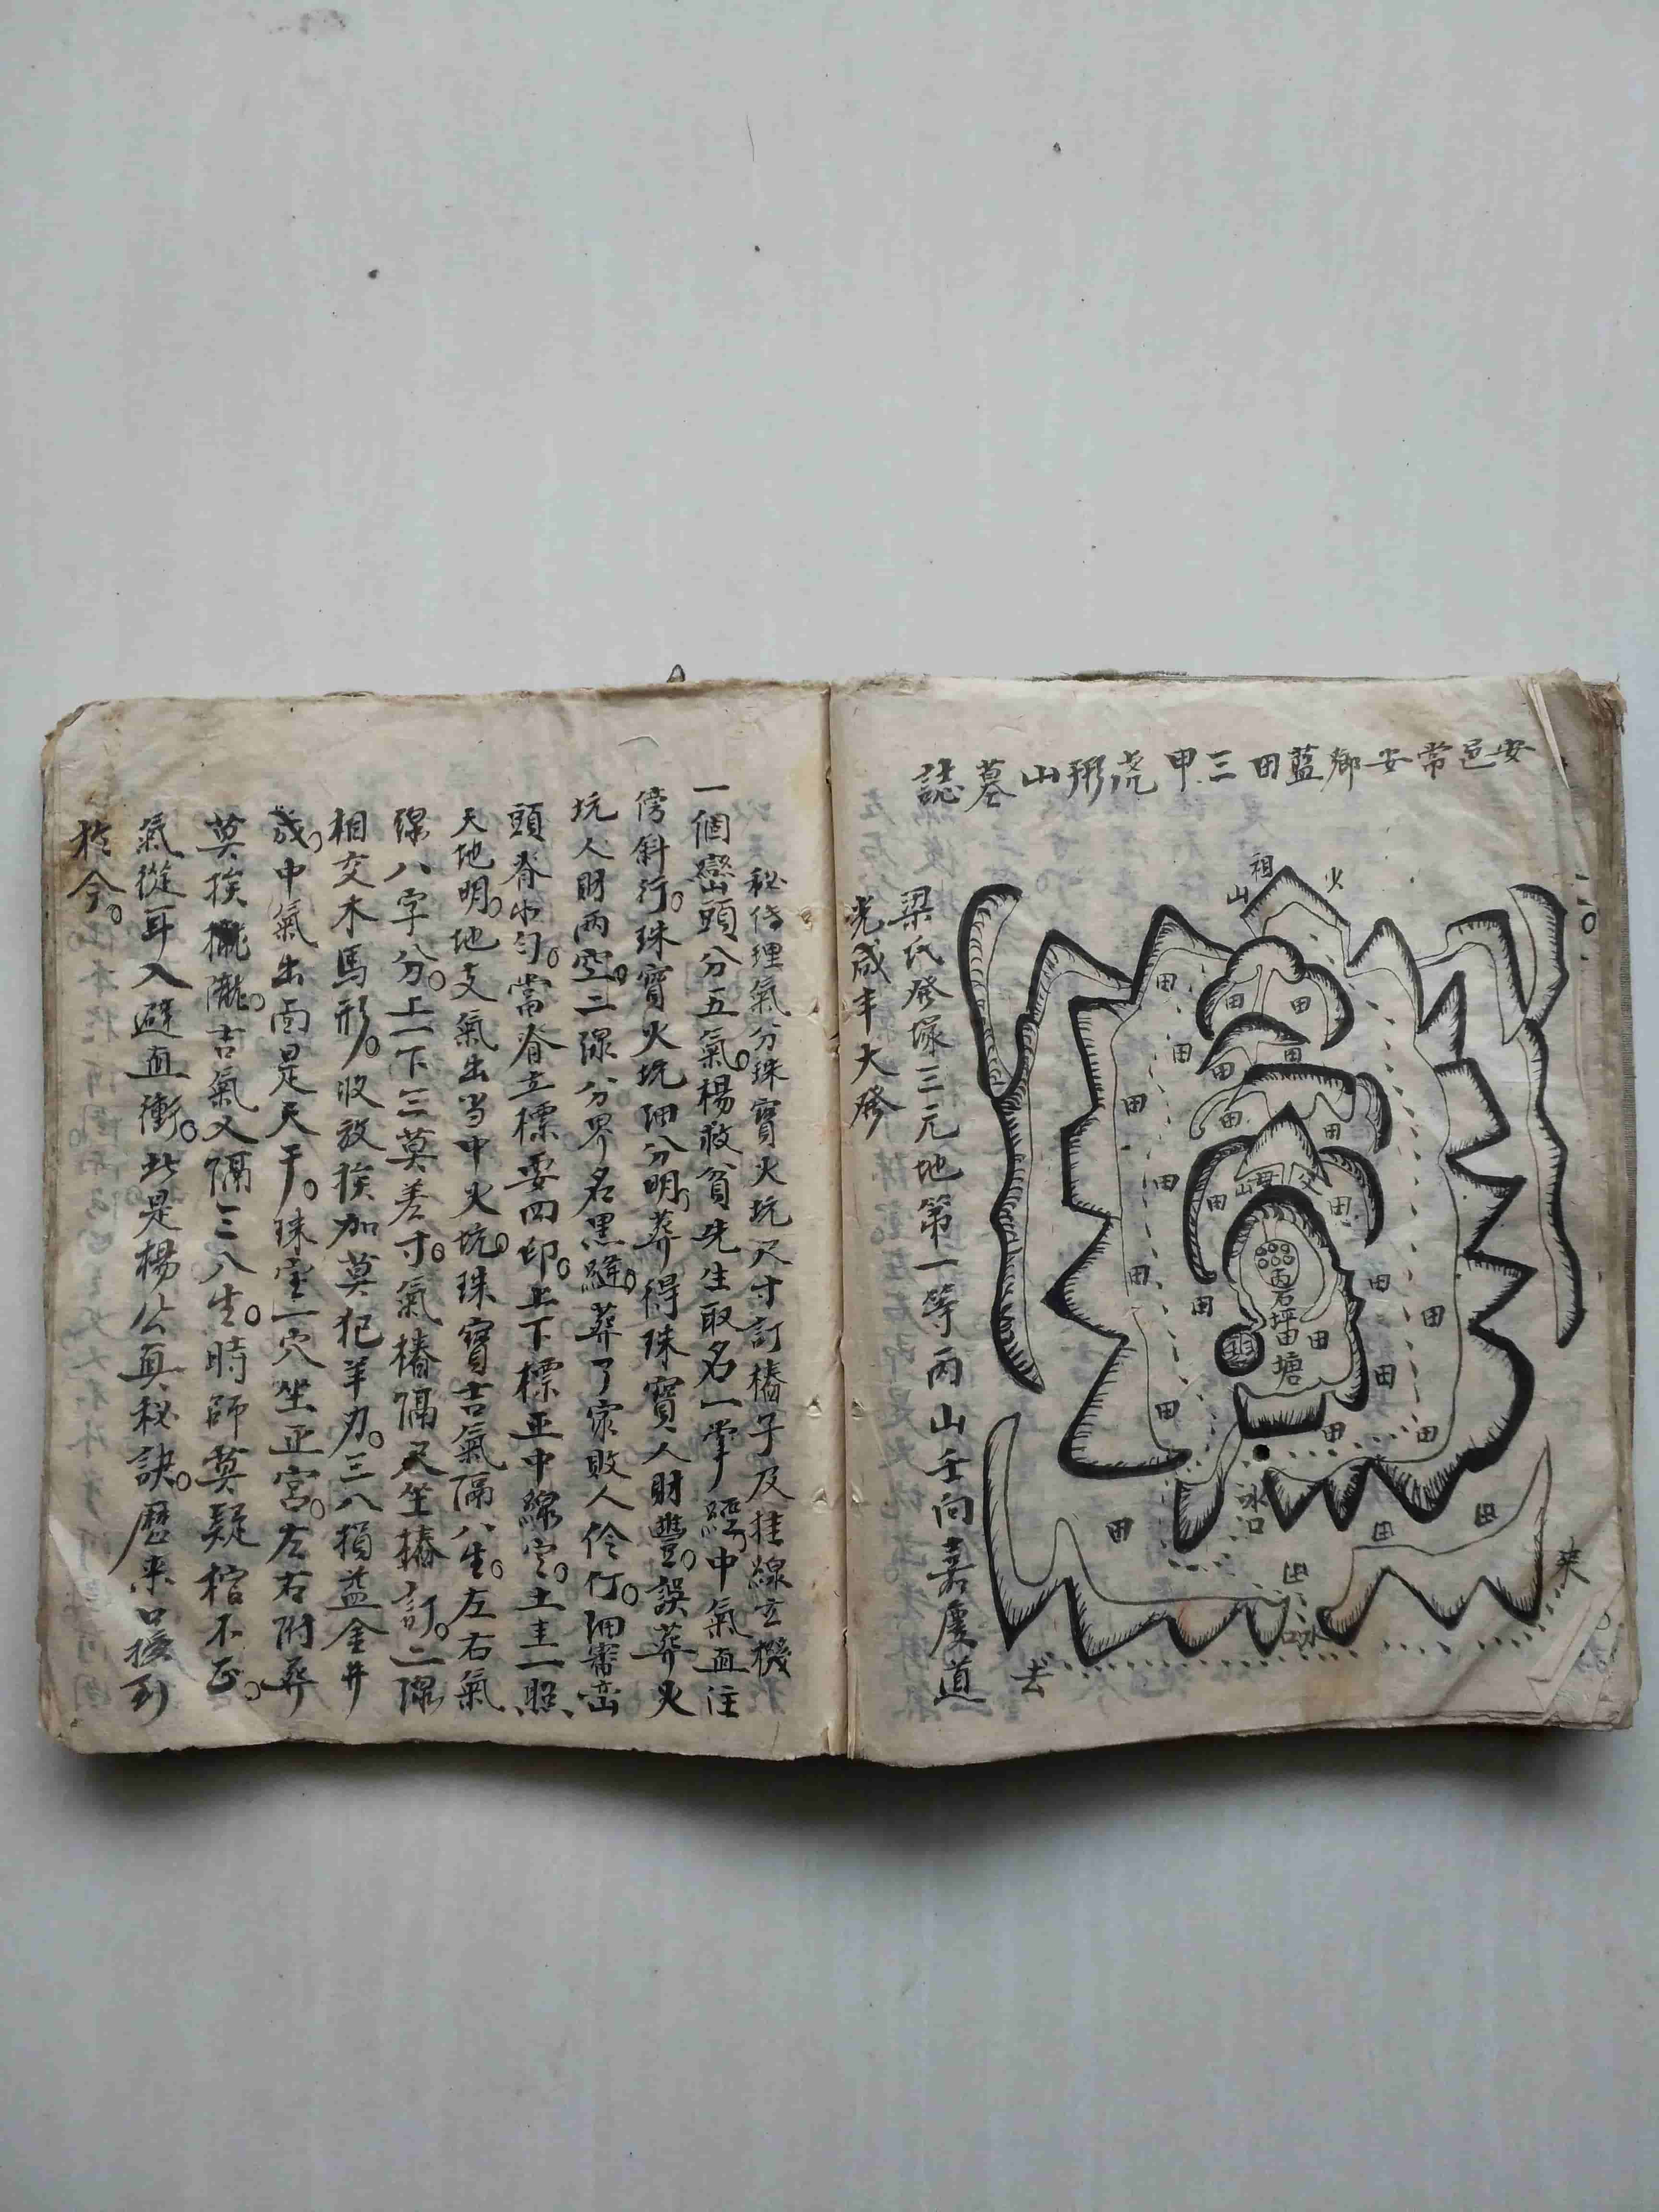 安邑常安鄉藍田三甲虎形山墓誌
祖山
火
田
田
田
田
田
田
田
田
田
父母山
田
田
田
田
田
田
田
雲岩坪田塘
田
羅
田
田
田
田
水口
田
田
田
田
水口
來
去
梁氏發塚三元地第一等丙山壬向嘉慶道
光咸丰大發
秘傳理氣分珠寶火坑尺寸訂樁子及挂線玄機
一個巒頭分五氣楊救貧先生取名一掌經中氣直注
傍斜行珠寶火坑細分明葬得珠寶人財豐誤葬火
坑人財兩空二線分界名黑縫葬了家敗人伶仃細審巒
頭脊出勻當脊立標要四印上下標正中線定土圭一照
天地明地支氣出当中火坑珠寶吉氣隔八生左右氣
線八字分上一下三莫差寸氣樁隔尺坐樁訂二線
相交木馬形收放挨加莫犯羊刃三八損益金井
成中氣出面是天干珠宝一穴坐正宮左右附葬
莫挨攏吉氣又隔三八生時師莫疑棺不正
氣從耳入避直衝此是楊公真秘訣歷來口授到
於今